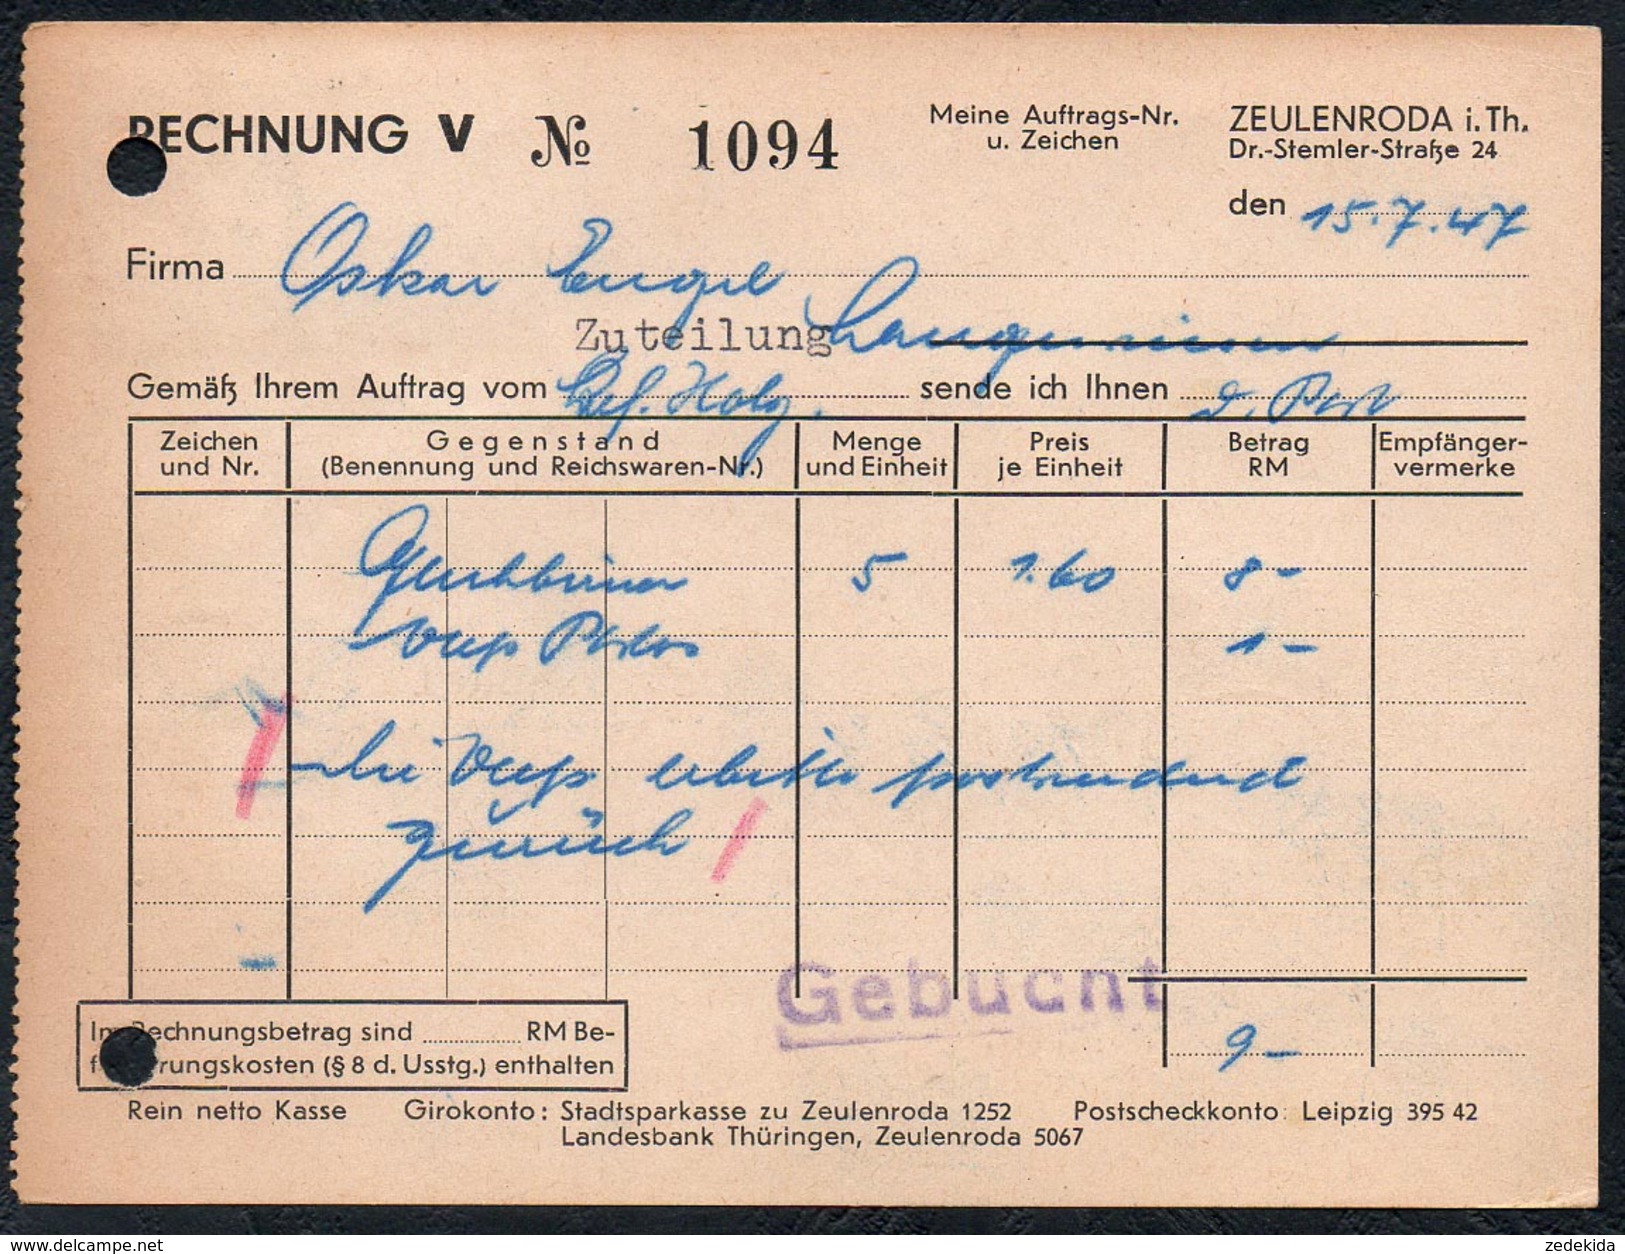 RECHNUNG V № 1094
Meine Auftrags-Nr.
u. Zeichen
ZEULENRODA i. Th.
Dr.-Stemler-Straße 24
den 15.7.47
Firma Oskar Engel
Zuteilung
Gemäß Ihrem Auftrag vom sende ich Ihnen d. Post
Zeichen und Nr.
Gegenstand
(Benennung und Reichswaren-Nr.)
Menge und Einheit
Preis je Einheit
Betrag RM
Empfänger-vermerke
5 1.60 8-
Verp Porto 1-
die Verp erbitte postwendend
zurück
Gebucht
Im Rechnungsbetrag sind RM Be-
rungskosten (§ 8 d. Usstg.) enthalten
9-
Rein netto Kasse Girokonto: Stadtsparkasse zu Zeulenroda 1252 Postscheckkonto: Leipzig 395 42
Landesbank Thüringen, Zeulenroda 5067
zedekida
www.delcampe.net